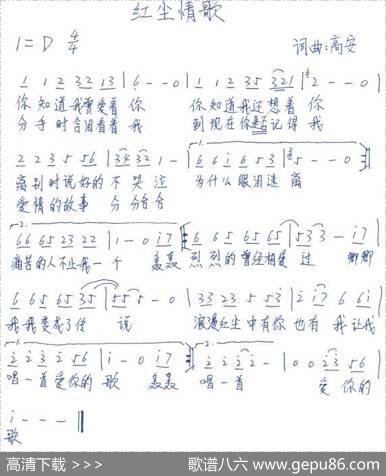 红尘情歌
1=D 4/4 词曲:高安
1 1 2 3 2 1 3 | 6 - - 0 | 1 1 2 3 5 3 2 1 | 2 - - 0 |
你知道我曾爱着 你 你知道我还想着 你
分手时含泪看着 我 到现在你是否记得 我
2 2 3 5 5 6 | 3 4 3 2 1 - | 6 6 i 6 5 3 | 5 - - 0
离别时说好的 不哭泣 为什么眼泪迷离
爱情的故事 分分合合
6 6 6 5 2 3 2 2 | 1 - 0 i 7 6 6 5 6 5 6 5 | 5 3 3 - i 7 |
痛苦的人不止我一个 轰轰 烈烈的曾经相爱 过 卿卿
6 6 5 6 5 3 5 | 5 5 5 - 0 | 3 3 2 3 5 5 3 | 2 i 7 6 6 i |
我我变成了传 说 浪漫红尘中有你 也有 我 让我
2 2 3 2 5 6 | i - 0 i 7 2 i 2 2 - | 0 0 2 3 5 6 |
唱一首爱你的 歌 轰轰 唱一首 爱你的
i - - - ‖
歌
高清下载 >>> 歌谱八六 www.gepu86.com